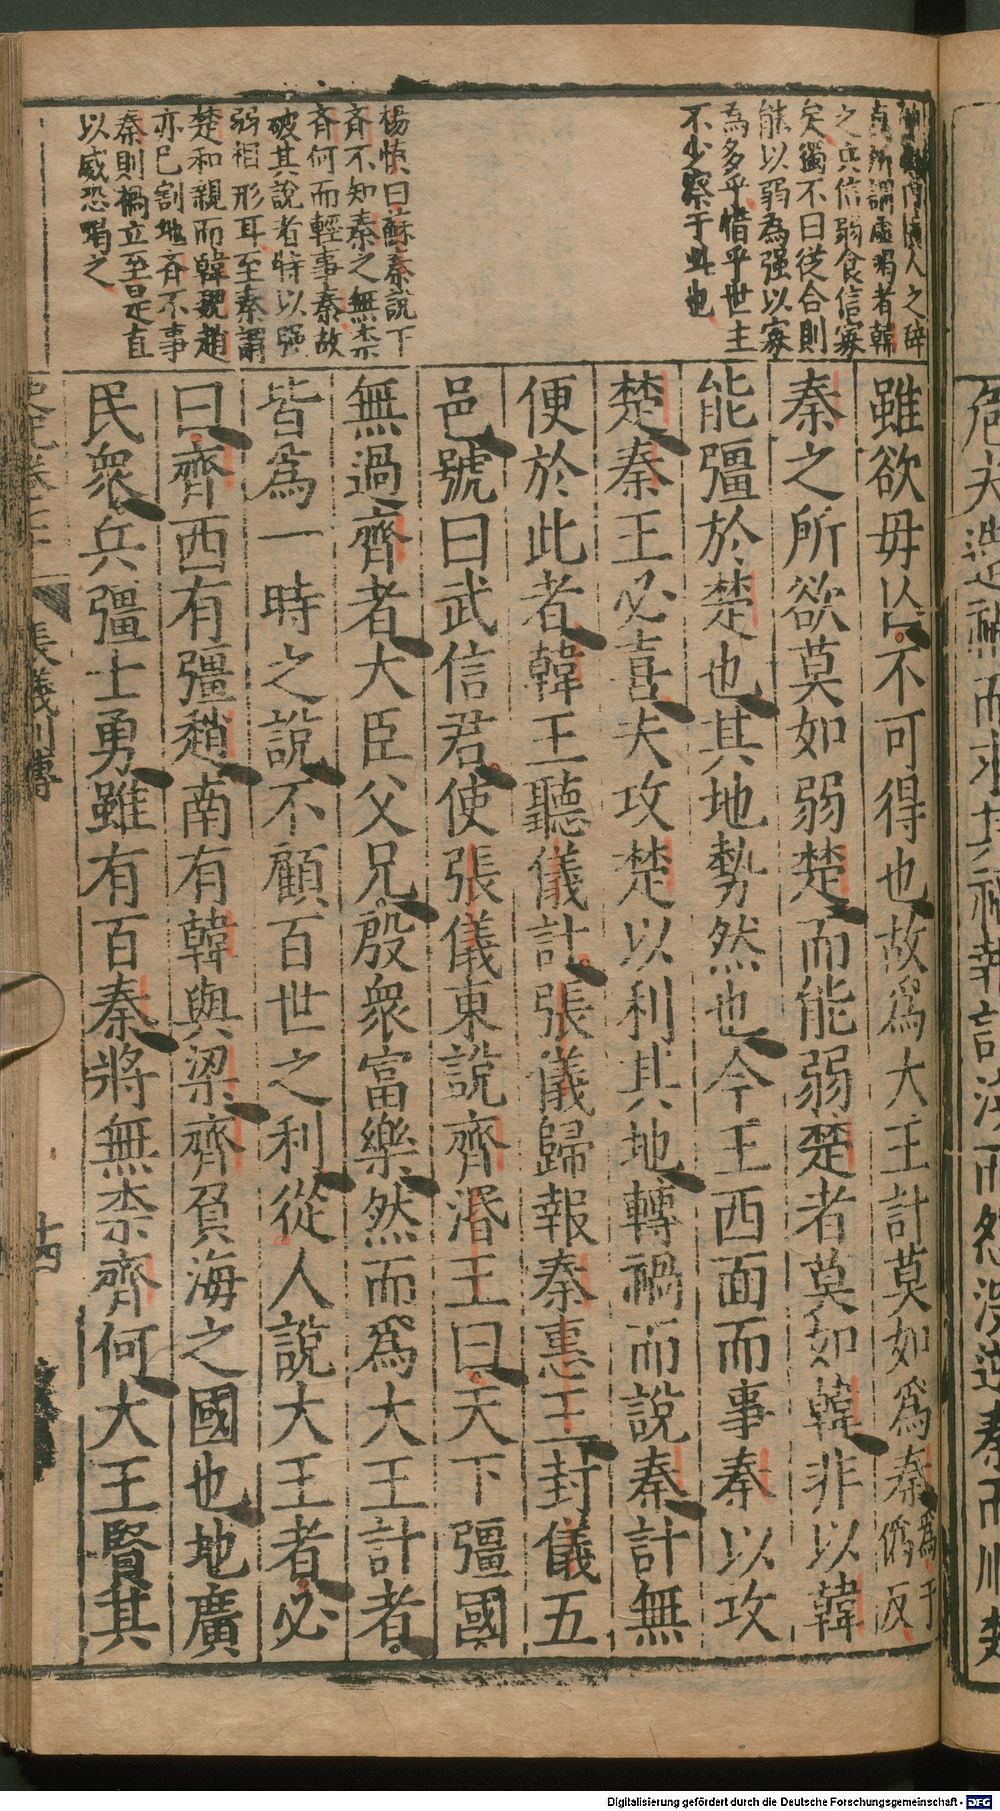 之辭
真所謂虛喝者韓
之兵信弱食信寡
矣獨不曰從合則
能以弱為强以寡
為多乎惜乎世主
不少察于此也
楊慎曰蘇秦說下
斉不知秦之無柰
斉何而輕事秦故
破其說者特以强
弱相形耳至秦謂
楚和親而韓魏趙
亦已割地斉不事
秦則禍立至是直
以威恐喝之
雖欲毋亡不可得也故爲大王計莫如爲秦爲于僞反
秦之所欲莫如弱楚而能弱楚者莫如韓非以韓
能彊於楚也其地勢然也今王西面而事秦以攻
楚秦王必喜夫攻楚以利其地轉禍而說秦計無
便於此者韓王聽儀計張儀歸報秦惠王封儀五
邑號曰武信君使張儀東說齊湣王曰天下彊國
無過齊者大臣父兄殷衆富樂然而爲大王計者
皆爲一時之說不顧百世之利從人說大王者必
曰齊西有彊趙南有韓與梁齊負海之國也地廣
民衆兵彊士勇雖有百秦將無柰齊何大王賢其
張儀列傳
十四
Digitalisierung gefördert durch die Deutsche Forschungsgemeinschaft - DFG